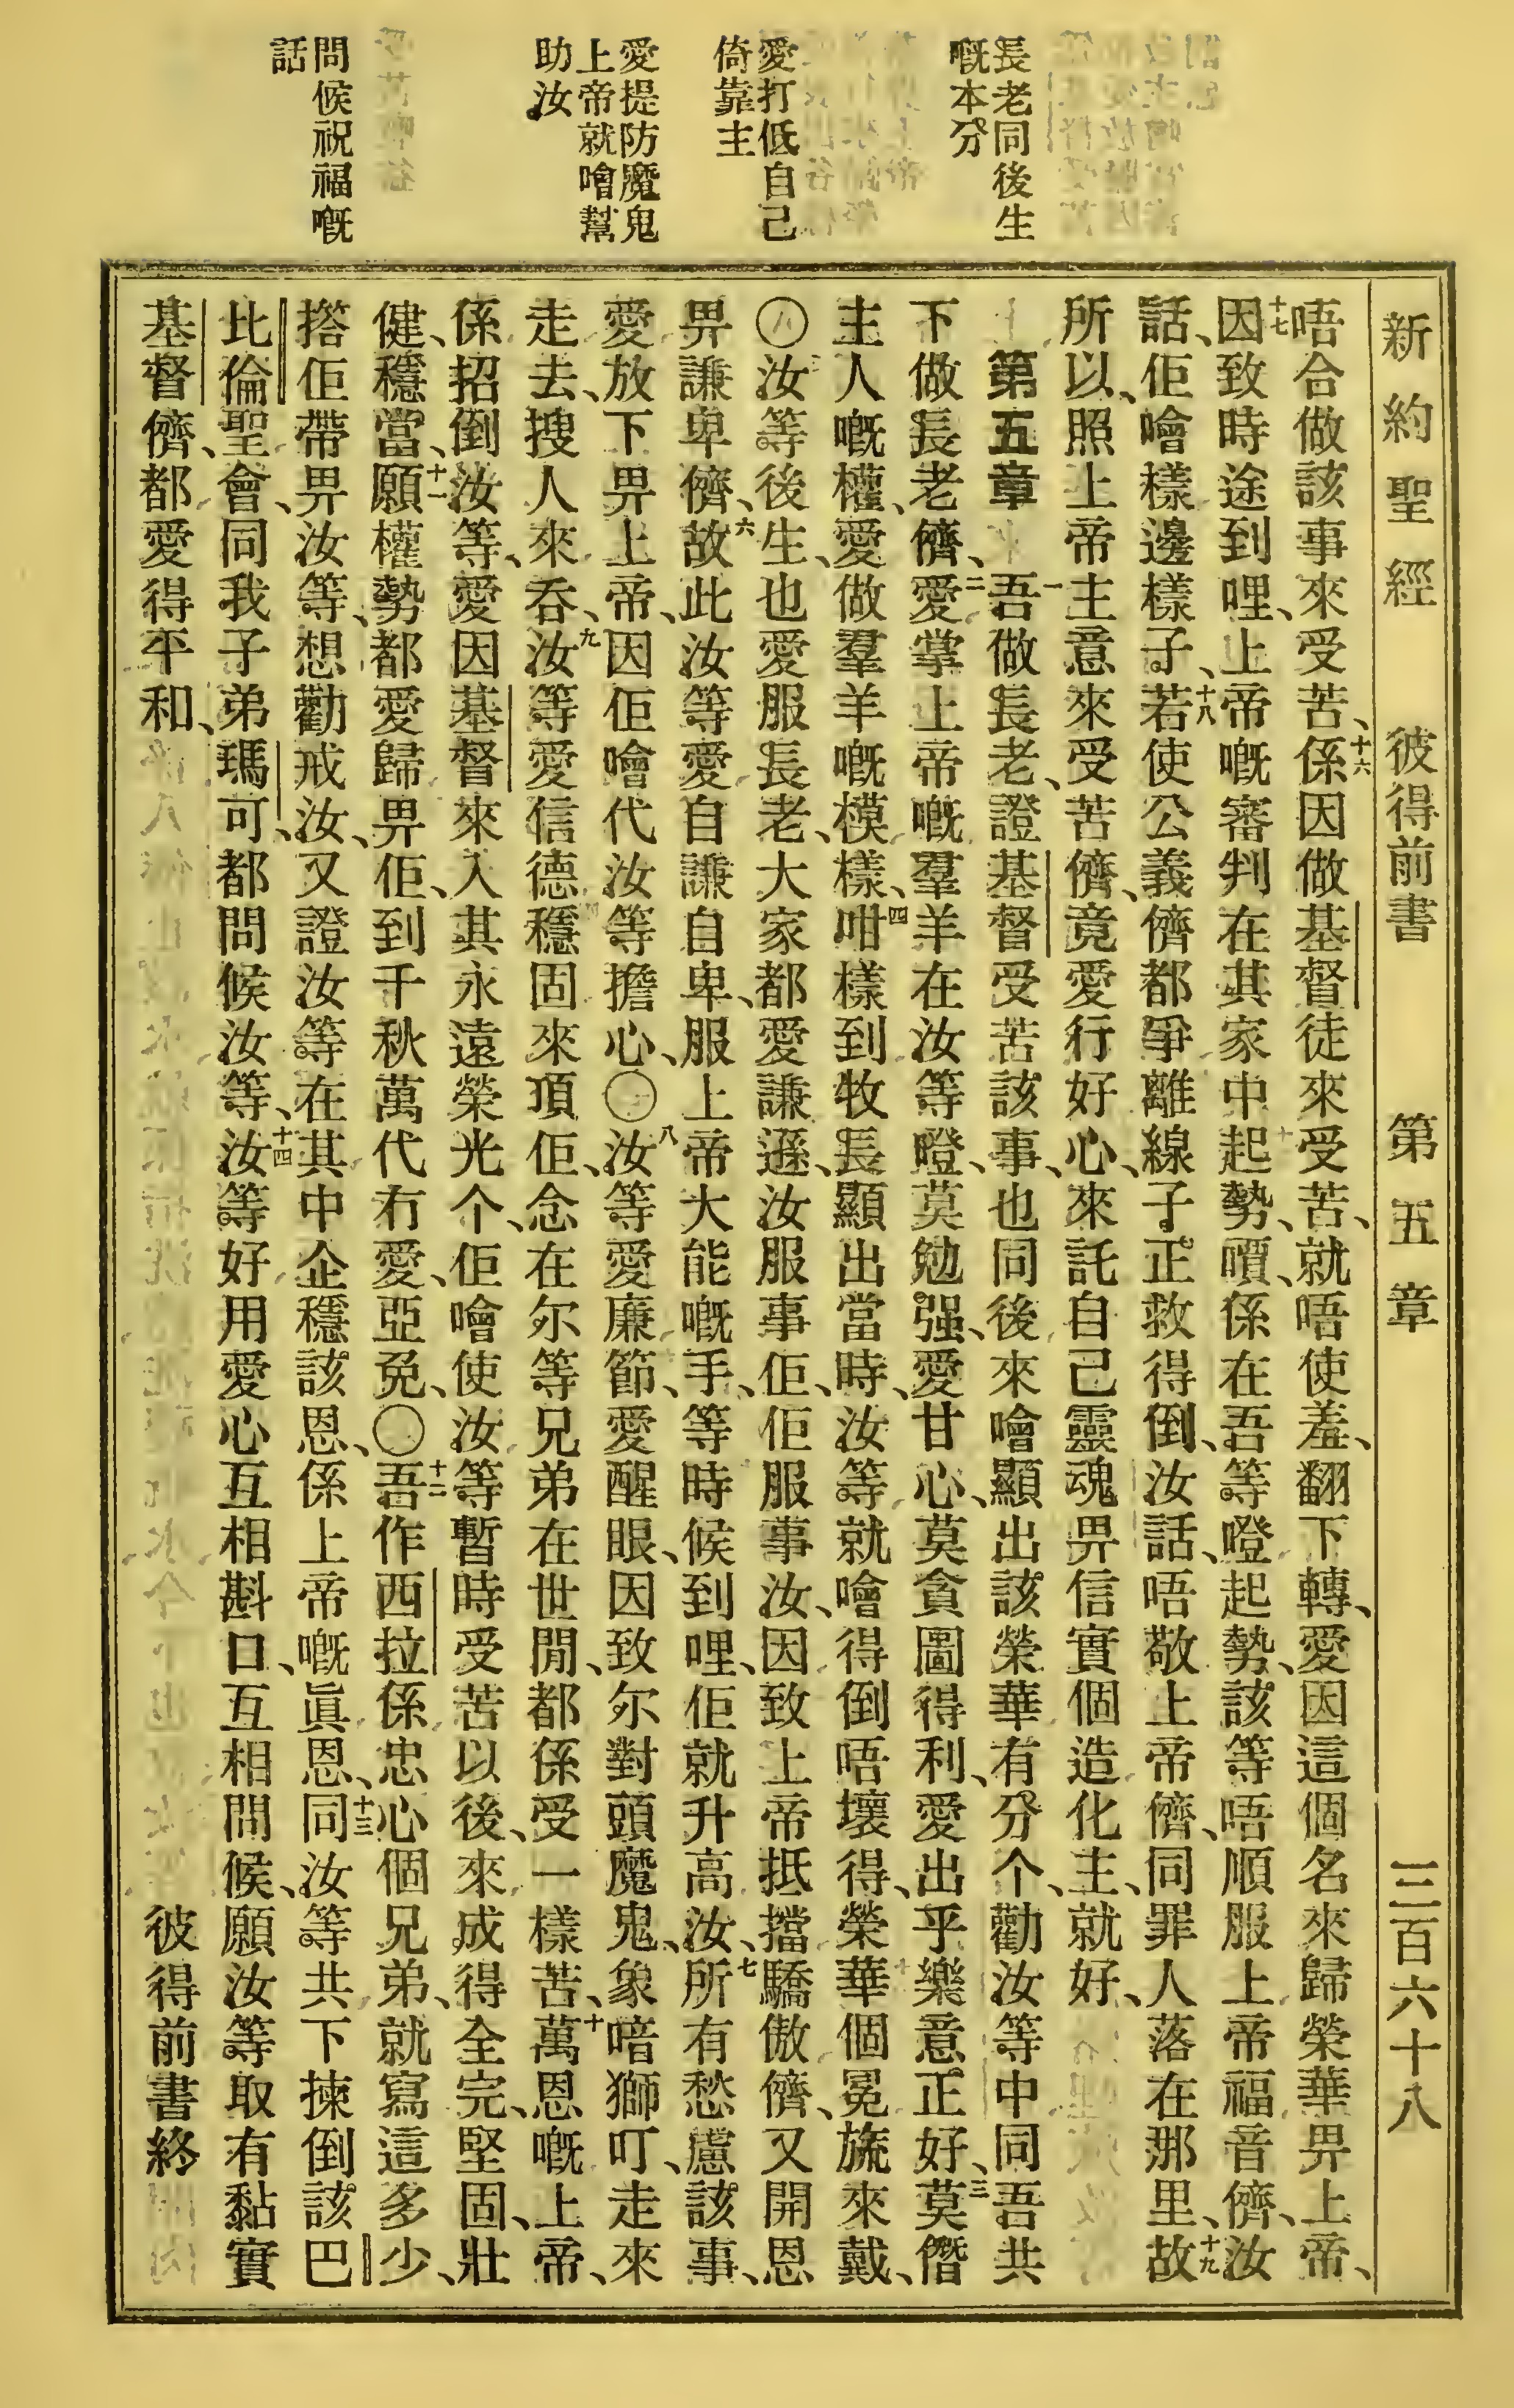 新約聖經 彼得前書 第五章 三百六十八
長老同後生
嘅本分
愛打低自己
倚靠主
愛提防魔鬼
上帝就噲幫
助汝
問候祝福嘅
話
唔合做該事來受苦、十六係因做基督徒來受苦、就唔使羞、翻下轉、愛因這個名來歸榮華畀上帝、
十七因致時途到哩、上帝嘅審判在其家中起勢、嘪、係在吾等噔起勢、該等唔順服上帝福音儕、汝
話、佢噲樣邊樣子、十八若使公義儕都爭離線子正救得倒、汝話、唔敬上帝儕、同罪人落在那里、十九故
所以、照上帝主意來受苦儕、竟愛行好心、來託自己靈魂畀信實個造化主、就好、
第五章 一吾做長老、證基督受苦該事、也同後來噲顯出該榮華有分个、勸汝等中同吾共
下做長老儕、二愛掌上帝嘅羣羊在汝等噔、莫勉强、愛甘心、莫貪圖得利、愛出乎樂意正好、三莫僭
主人嘅權、愛做羣羊嘅模樣、四咁樣到牧長顯出當時、汝等就噲得倒唔壞得、榮華個冕旒來戴、
〇汝等後生、也愛服長老、大家都愛謙遜、汝服事佢、佢服事汝、因致上帝抵擋驕傲儕、又開恩
畀謙卑儕、六故此汝等愛自謙自卑、服上帝大能嘅手、等時候到哩、佢就升高汝、七所有愁慮該事、
愛放下畀上帝、因佢噲代汝等擔心、〇八汝等愛廉節、愛醒眼、因致尔對頭魔鬼、象喑獅叮、走來
走去、搜人來吞、九汝等愛信德穩固來項佢、念在尔等兄弟在世間、都係受一樣苦、十萬恩嘅上帝、
係招倒汝等、愛因基督來入其永遠榮光个、佢噲使汝等暫時受苦以後、來成得全完、堅固、壯
健、穩當、十一願權勢都愛歸畀佢、到千秋萬代冇愛、亞㝹、〇十二吾作西拉係忠心個兄弟、就寫這多少、
撘佢帶畀汝等、想勸戒汝、又證汝等在其中企穩該恩、係上帝嘅眞恩、十三同汝等共下揀倒該巴
比倫聖會、同我子弟瑪可、都問候汝等、十四汝等好用愛心互相斟口、互相問候、願汝等取有黏實
基督儕、都愛得平和、 彼得前書終